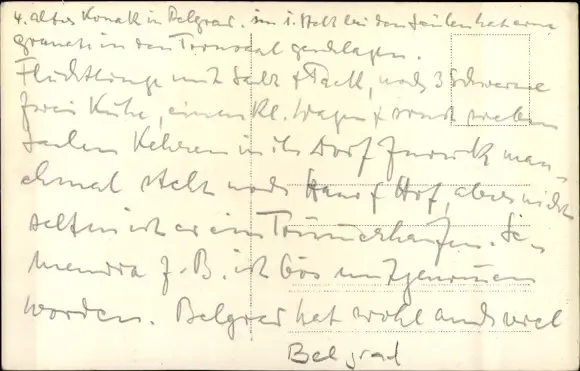 4. alter Konak in Belgrad. im 1. Stck bei den Säulen hat eine
granate in den Tronsaal geschlagen.
Flüchtlinge mit Sack & Pack, noch 3 Schweine
zwei Kühe, einen kl. Wagen & sonst sieben
Sachen kehren in ihr Dorf zurück man-
chmal steht noch Haus & Hof, aber nicht
selten ist er ein Trümmerhaufen. Se-
mendria z. B. ist bös mitgenommen
worden. Belgrad hat wohl auch viel
Belgrad